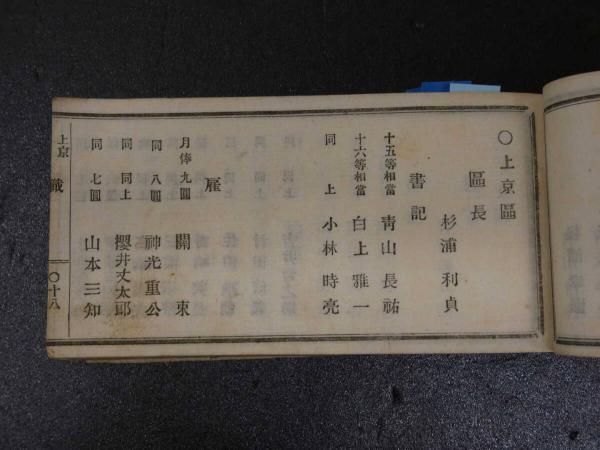 〇上京區
區長
杉浦利貞
書記
十五等相當 靑山長祐
十六等相當 白上雅一
同上 小林時亮
雇
月俸九圓 關東
同八圓 神光重公
同同上 櫻井丈太郎
同七圓 山本三知
上京 職 〇十八